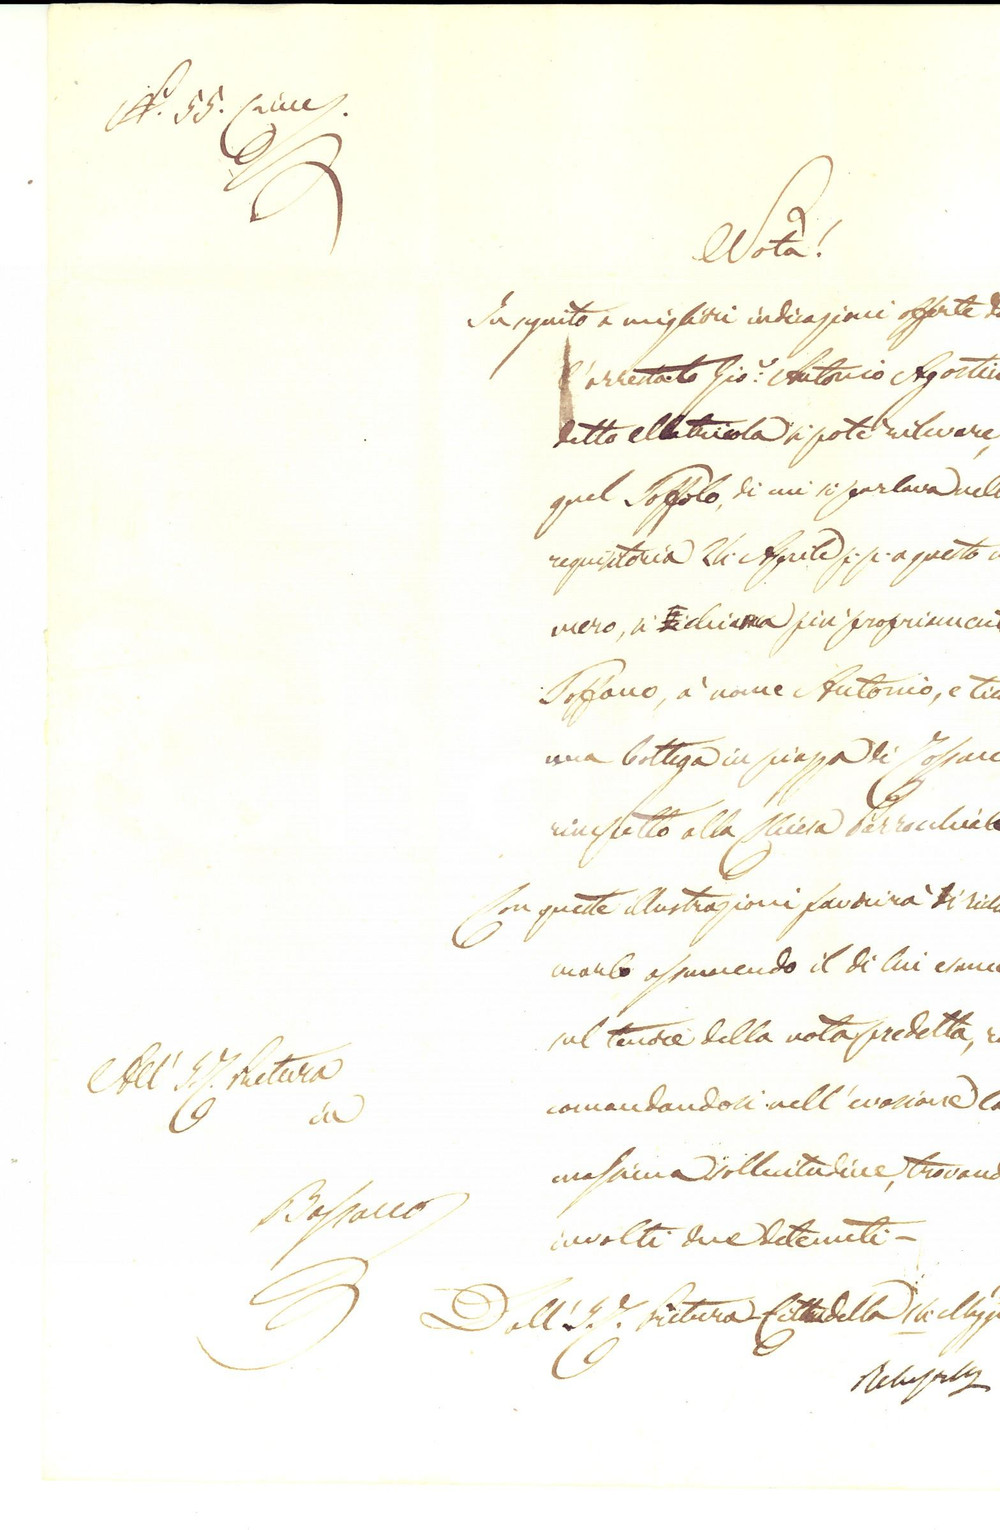 N. 55. Crim.
Nota!
In seguito a migliori indicazioni offerte da
l'arrestato Gio: Antonio Agostin
detto Matricola si poté rilevare,
quel Toffolo, di cui si parlava nell
requisitoria 24 Aprile p. p. a questo n
mero, si chiama più propriamen
Toffano, à nome Antonio, e tie
una bottega in piazza di Rossan
rimpetto alla Chiesa Parrocchiale
Con queste illustrazioni favorirà di richia
marlo assumendo il di lui esame
sul tenore della nota predetta, ra
comandandosi nell'evasione la
massima sollecitudine, trovand
involti due detenuti -
All' I. R. Pretura
in
Bassano
Dall' I. R. Pretura Cittadella 14 Magg